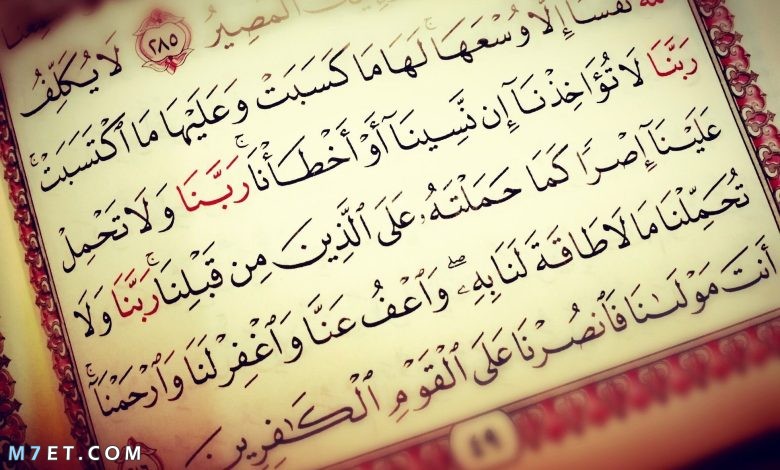 الْمَصِيرُ ٢٨٥ لَا يُكَلِّفُ
نَفْسًا إِلَّا وُسْعَهَا لَهَا مَا كَسَبَتْ وَعَلَيْهَا مَا ٱكْتَسَبَتْ
رَبَّنَا لَا تُؤَاخِذْنَآ إِن نَّسِينَآ أَوْ أَخْطَأْنَا رَبَّنَا وَلَا تَحْمِلْ
عَلَيْنَآ إِصْرًا كَمَا حَمَلْتَهُۥ عَلَى ٱلَّذِينَ مِن قَبْلِنَا رَبَّنَا وَلَا
تُحَمِّلْنَا مَا لَا طَاقَةَ لَنَا بِهِۦ وَٱعْفُ عَنَّا وَٱغْفِرْ لَنَا وَٱرْحَمْنَآ
أَنتَ مَوْلَىٰنَا فَٱنصُرْنَا عَلَى ٱلْقَوْمِ ٱلْكَـٰفِرِينَ
٤٩
M7ET.COM